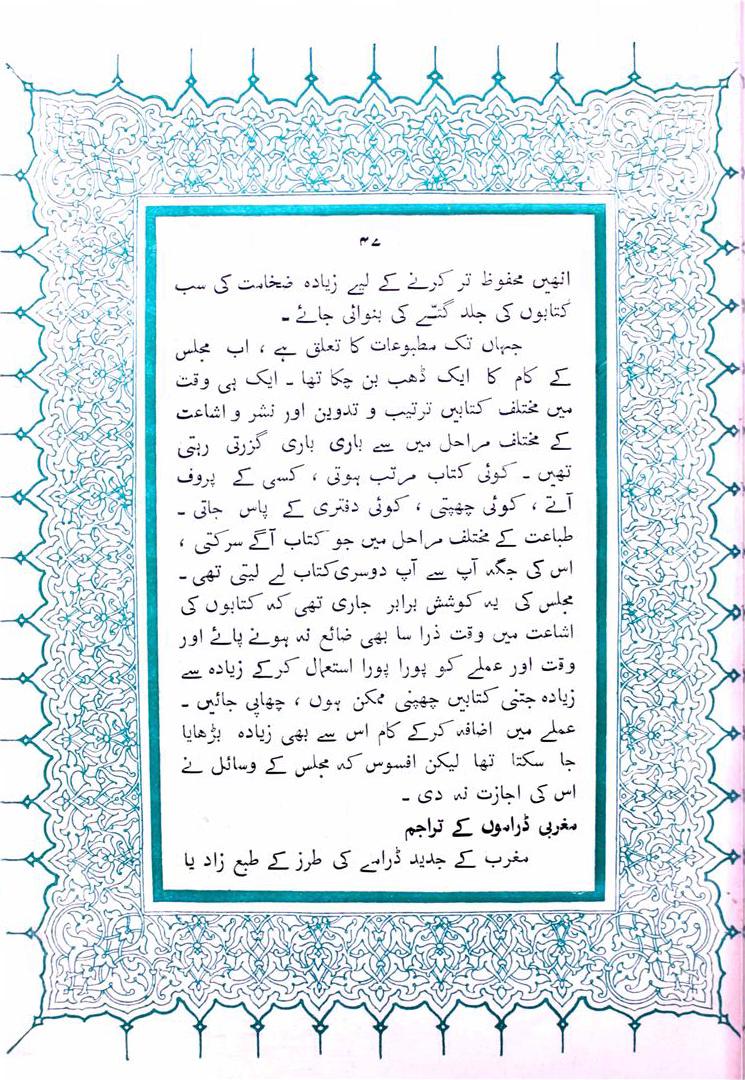 ۴۷
انھیں محفوظ تر کرنے کے لیے زیادہ ضخامت کی سب
کتابوں کی جلد گتّے کی بنوائی جائے ۔
جہاں تک مطبوعات کا تعلق ہے ، اب مجلس
کے کام کا ایک ڈھب بن چکا تھا ۔ ایک ہی وقت
میں مختلف کتابیں ترتیب و تدوین اور نشر و اشاعت
کے مختلف مراحل میں سے باری باری گزرتی رہتی
تھیں ۔ کوئی کتاب مرتب ہوتی ، کسی کے پروف
آتے ، کوئی چھپتی ، کوئی دفتری کے پاس جاتی ۔
طباعت کے مختلف مراحل میں جو کتاب آگے سرکتی ،
اس کی جگہ آپ سے آپ دوسری کتاب لے لیتی تھی ۔
مجلس کی یہ کوشش برابر جاری تھی کہ کتابوں کی
اشاعت میں وقت ذرا سا بھی ضائع نہ ہونے پائے اور
وقت اور عملے کو پورا پورا استعمال کرکے زیادہ سے
زیادہ جتنی کتابیں چھپنی ممکن ہوں ، چھاپی جائیں ۔
عملے میں اضافہ کرکے کام اس سے بھی زیادہ بڑھایا
جا سکتا تھا لیکن افسوس کہ مجلس کے وسائل نے
اس کی اجازت نہ دی ۔
مغربی ڈراموں کے تراجم
مغرب کے جدید ڈرامے کی طرز کے طبع زاد یا